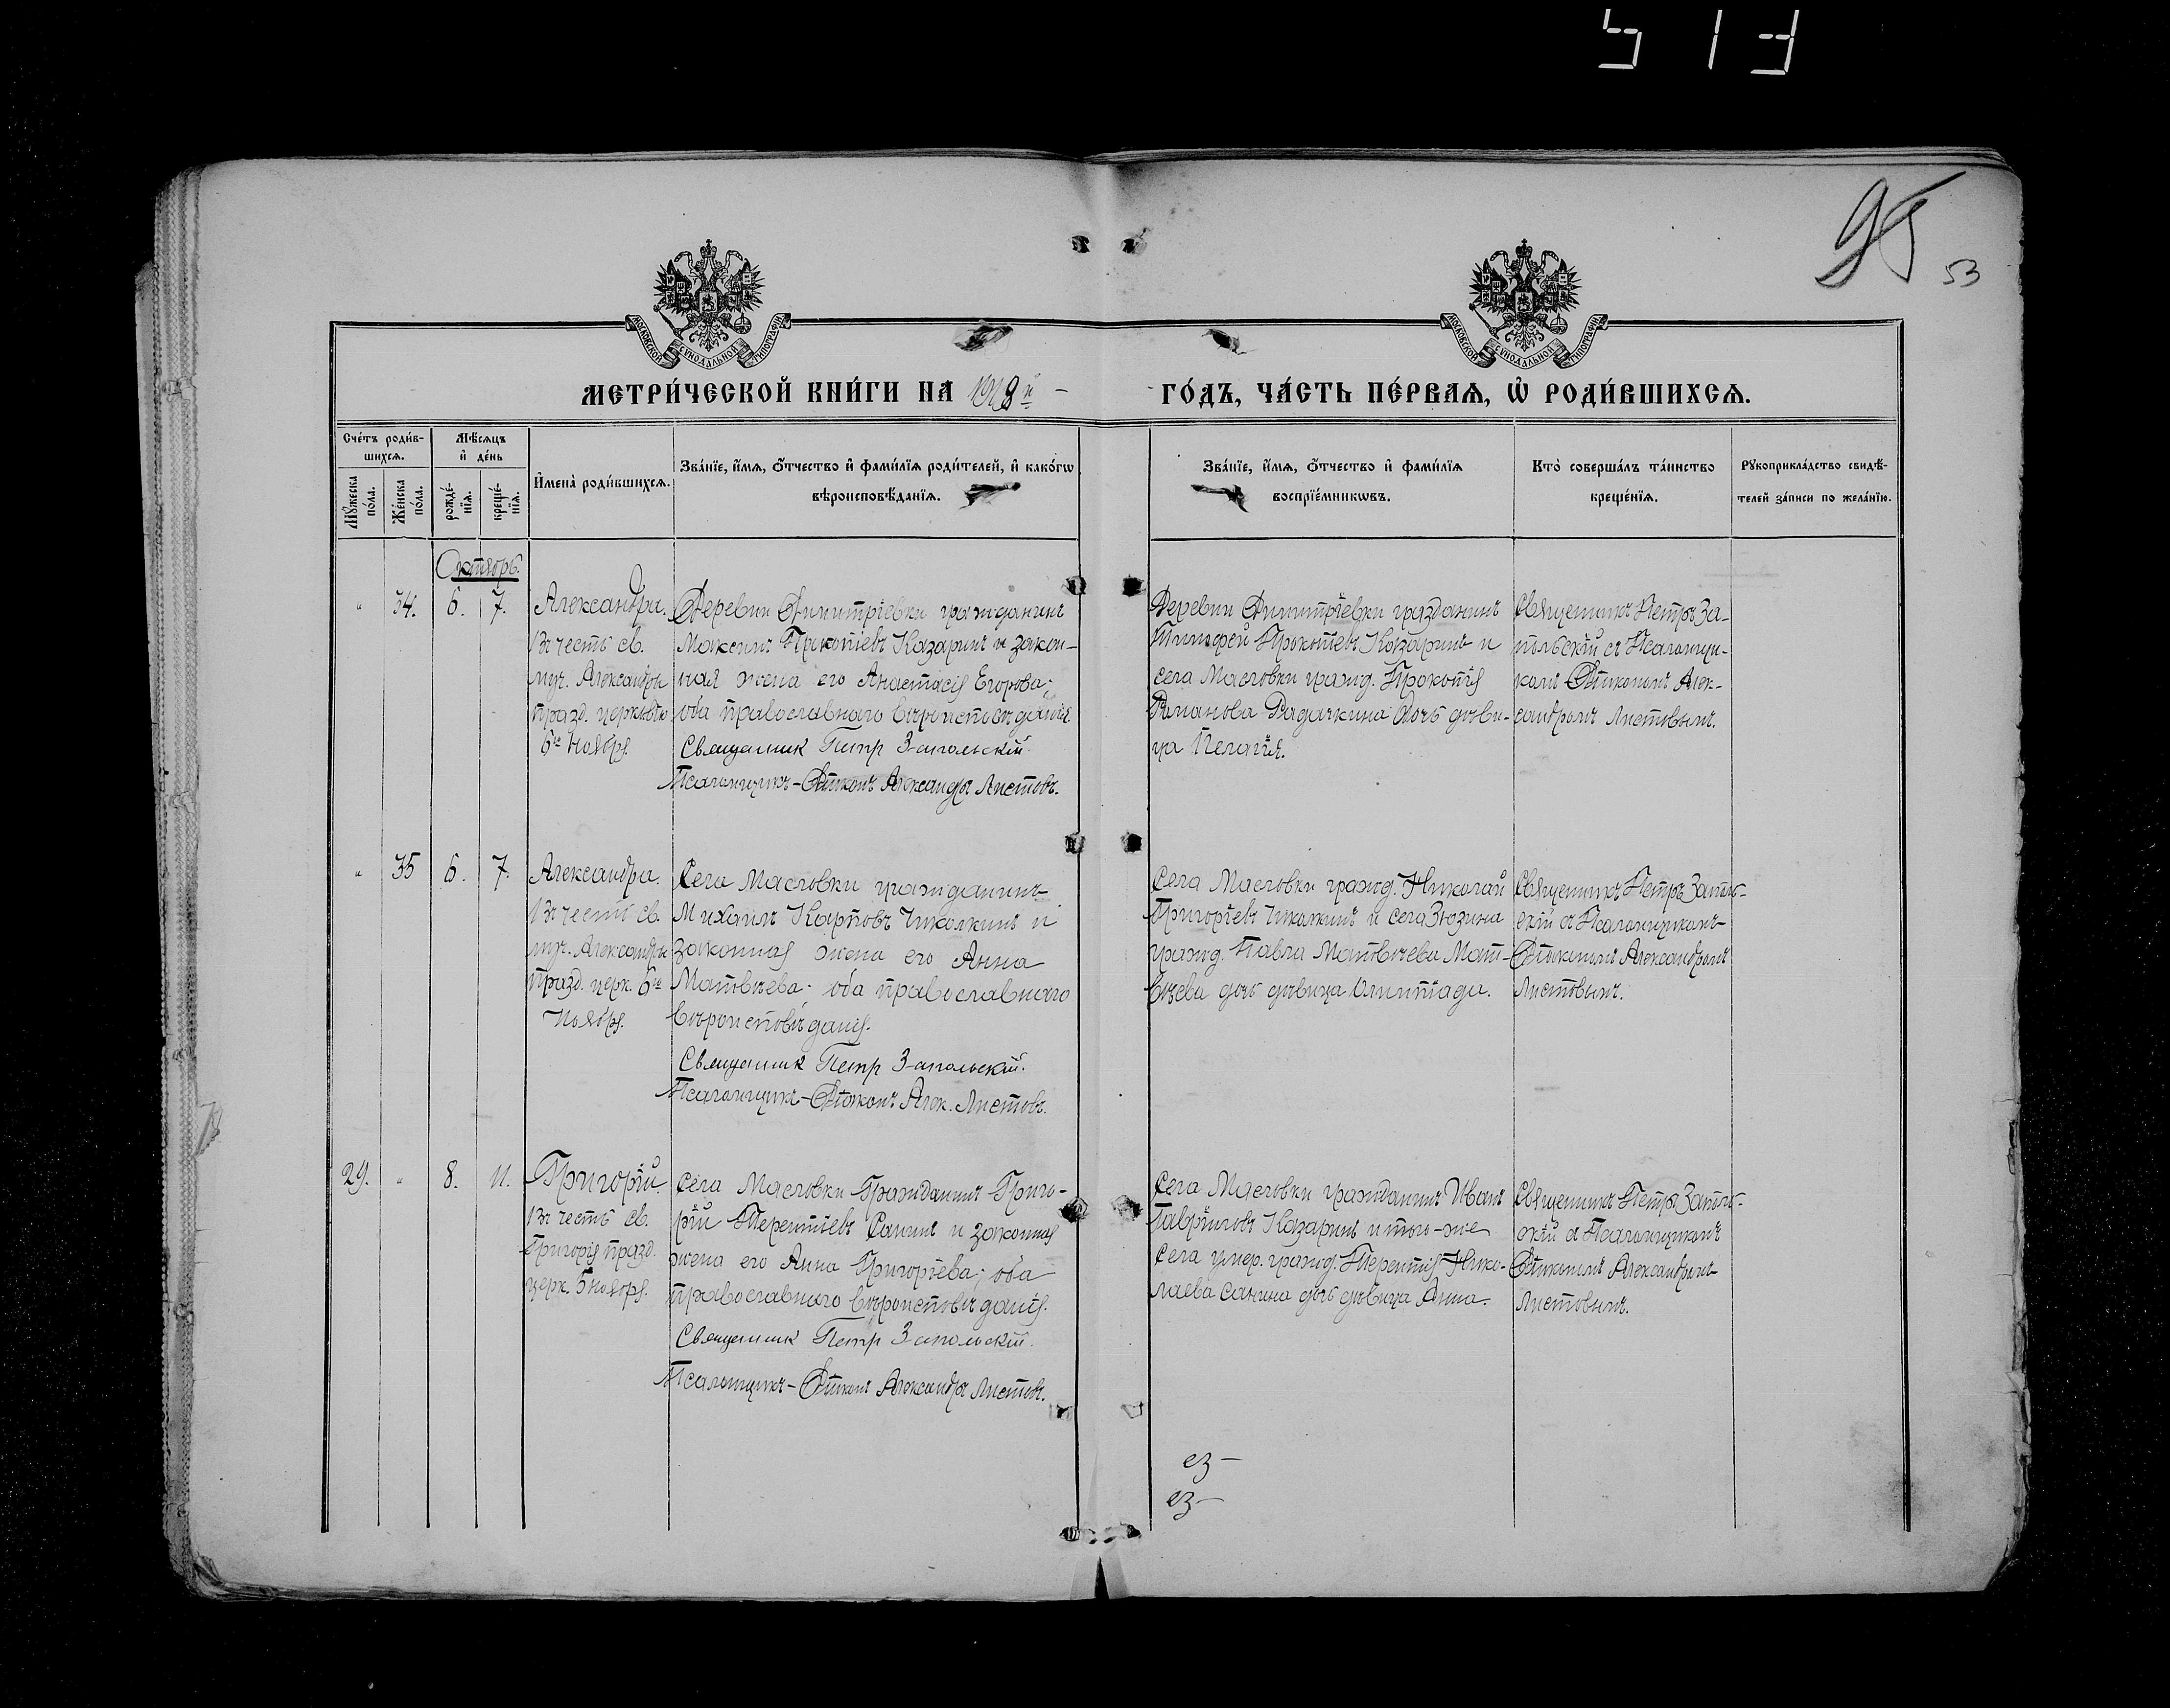 513
95
53
МОСКОВСКОЙ СѴНОДАЛЬНОЙ ТИПОГРАФІИ
МОСКОВСКОЙ СѴНОДАЛЬНОЙ ТИПОГРАФІИ
МЕТРИ́ЧЕСКОЙ КНИ́ГИ НА 1918 й
ГО́ДЪ, ЧА́СТЬ ПЕ́РВАѦ, Ѡ҆ РОДИ́ВШИХСѦ.
Сче́тъ роди́в-
шихсѧ.
Мѣ́сѧцъ
и҆ де́нь
Мꙋ́жеска
по́ла.
Же́нска
по́ла.
рожде́-
нїѧ.
креще́-
нїѧ.
И҆мена̀ роди́вшихсѧ.
Зва́нїе, и҆́мѧ, ѻ҆́тчество и҆ фами́лїѧ роди́телей, и҆ како́гѡ
вѣроисповѣ́данїѧ.
Зва́нїе, и҆́мѧ, ѻ҆́тчество и҆ фами́лїѧ
воспрїе́мникѡвъ.
Кто̀ соверша́лъ та́инство
креще́нїѧ.
Рꙋкоприкла́дство свидѣ́-
телей за́писи по жела́нїю.
Октябрь.
" 34. 6. 7. Александра.
Въ честь св.
муч. Александры
празд. церковью
6го Ноября.
Деревни Димитріевки гражданинъ
Максимъ Прокопіевъ Казаринъ и закон-
ная жена его Анастасія Егорова;
оба православнаго вѣроисповѣданія.
Священник Петр Запольскій.
Псаломщикъ-Діаконъ Александръ Листовъ.
Деревни Димитріевки гражданинъ
Тимофей Прокопіевъ Казаринъ и
села Масловки гражд. Прокопія
Романова Радачкина дочь дѣви-
ца Пелагія.
Священникъ Петръ За-
польскій съ Псаломщи-
комъ Діакономъ Алек-
сандромъ Листовымъ.
" 35 6. 7. Александра.
Въ честь св.
муч. Александры
празд. церк. 6го
Ноября.
Села Масловки гражданинъ
Михаилъ Карповъ Чикалкинъ и
законная жена его Анна
Матвѣева; оба православнаго
вѣроисповѣданія.
Священник Петр Запольскій.
Псаломщикъ-Діаконъ Алек. Листовъ.
Села Масловки гражд. Николай
Григоріевъ Чикалкинъ и села Зюзина
гражд. Павла Матвѣева Мат-
вѣева дочь дѣвица Олимпіада.
Священникъ Петръ Заполь-
скій съ Псаломщикомъ
Діакономъ Александромъ
Листовымъ.
29. " 8. 11. Григорій.
Въ честь св.
Григорія празд.
церк. 5 ноября.
Села Масловки Гражданинъ Григо-
рій Терентіевъ Санинъ и законная
жена его Анна Григоріева; оба
православнаго вѣроисповѣданія.
Священник Петр Запольскій.
Псаломщикъ-Діаконъ Александръ Листовъ.
Села Масловки гражданинъ Иванъ
Гавріиловъ Казаринъ и того-же
села умер. гражд. Терентія Нико-
лаева Санина дочь дѣвица Анна.
Священникъ Петръ Заполь-
скій съ Псаломщикомъ
Діакономъ Александромъ
Листовымъ.